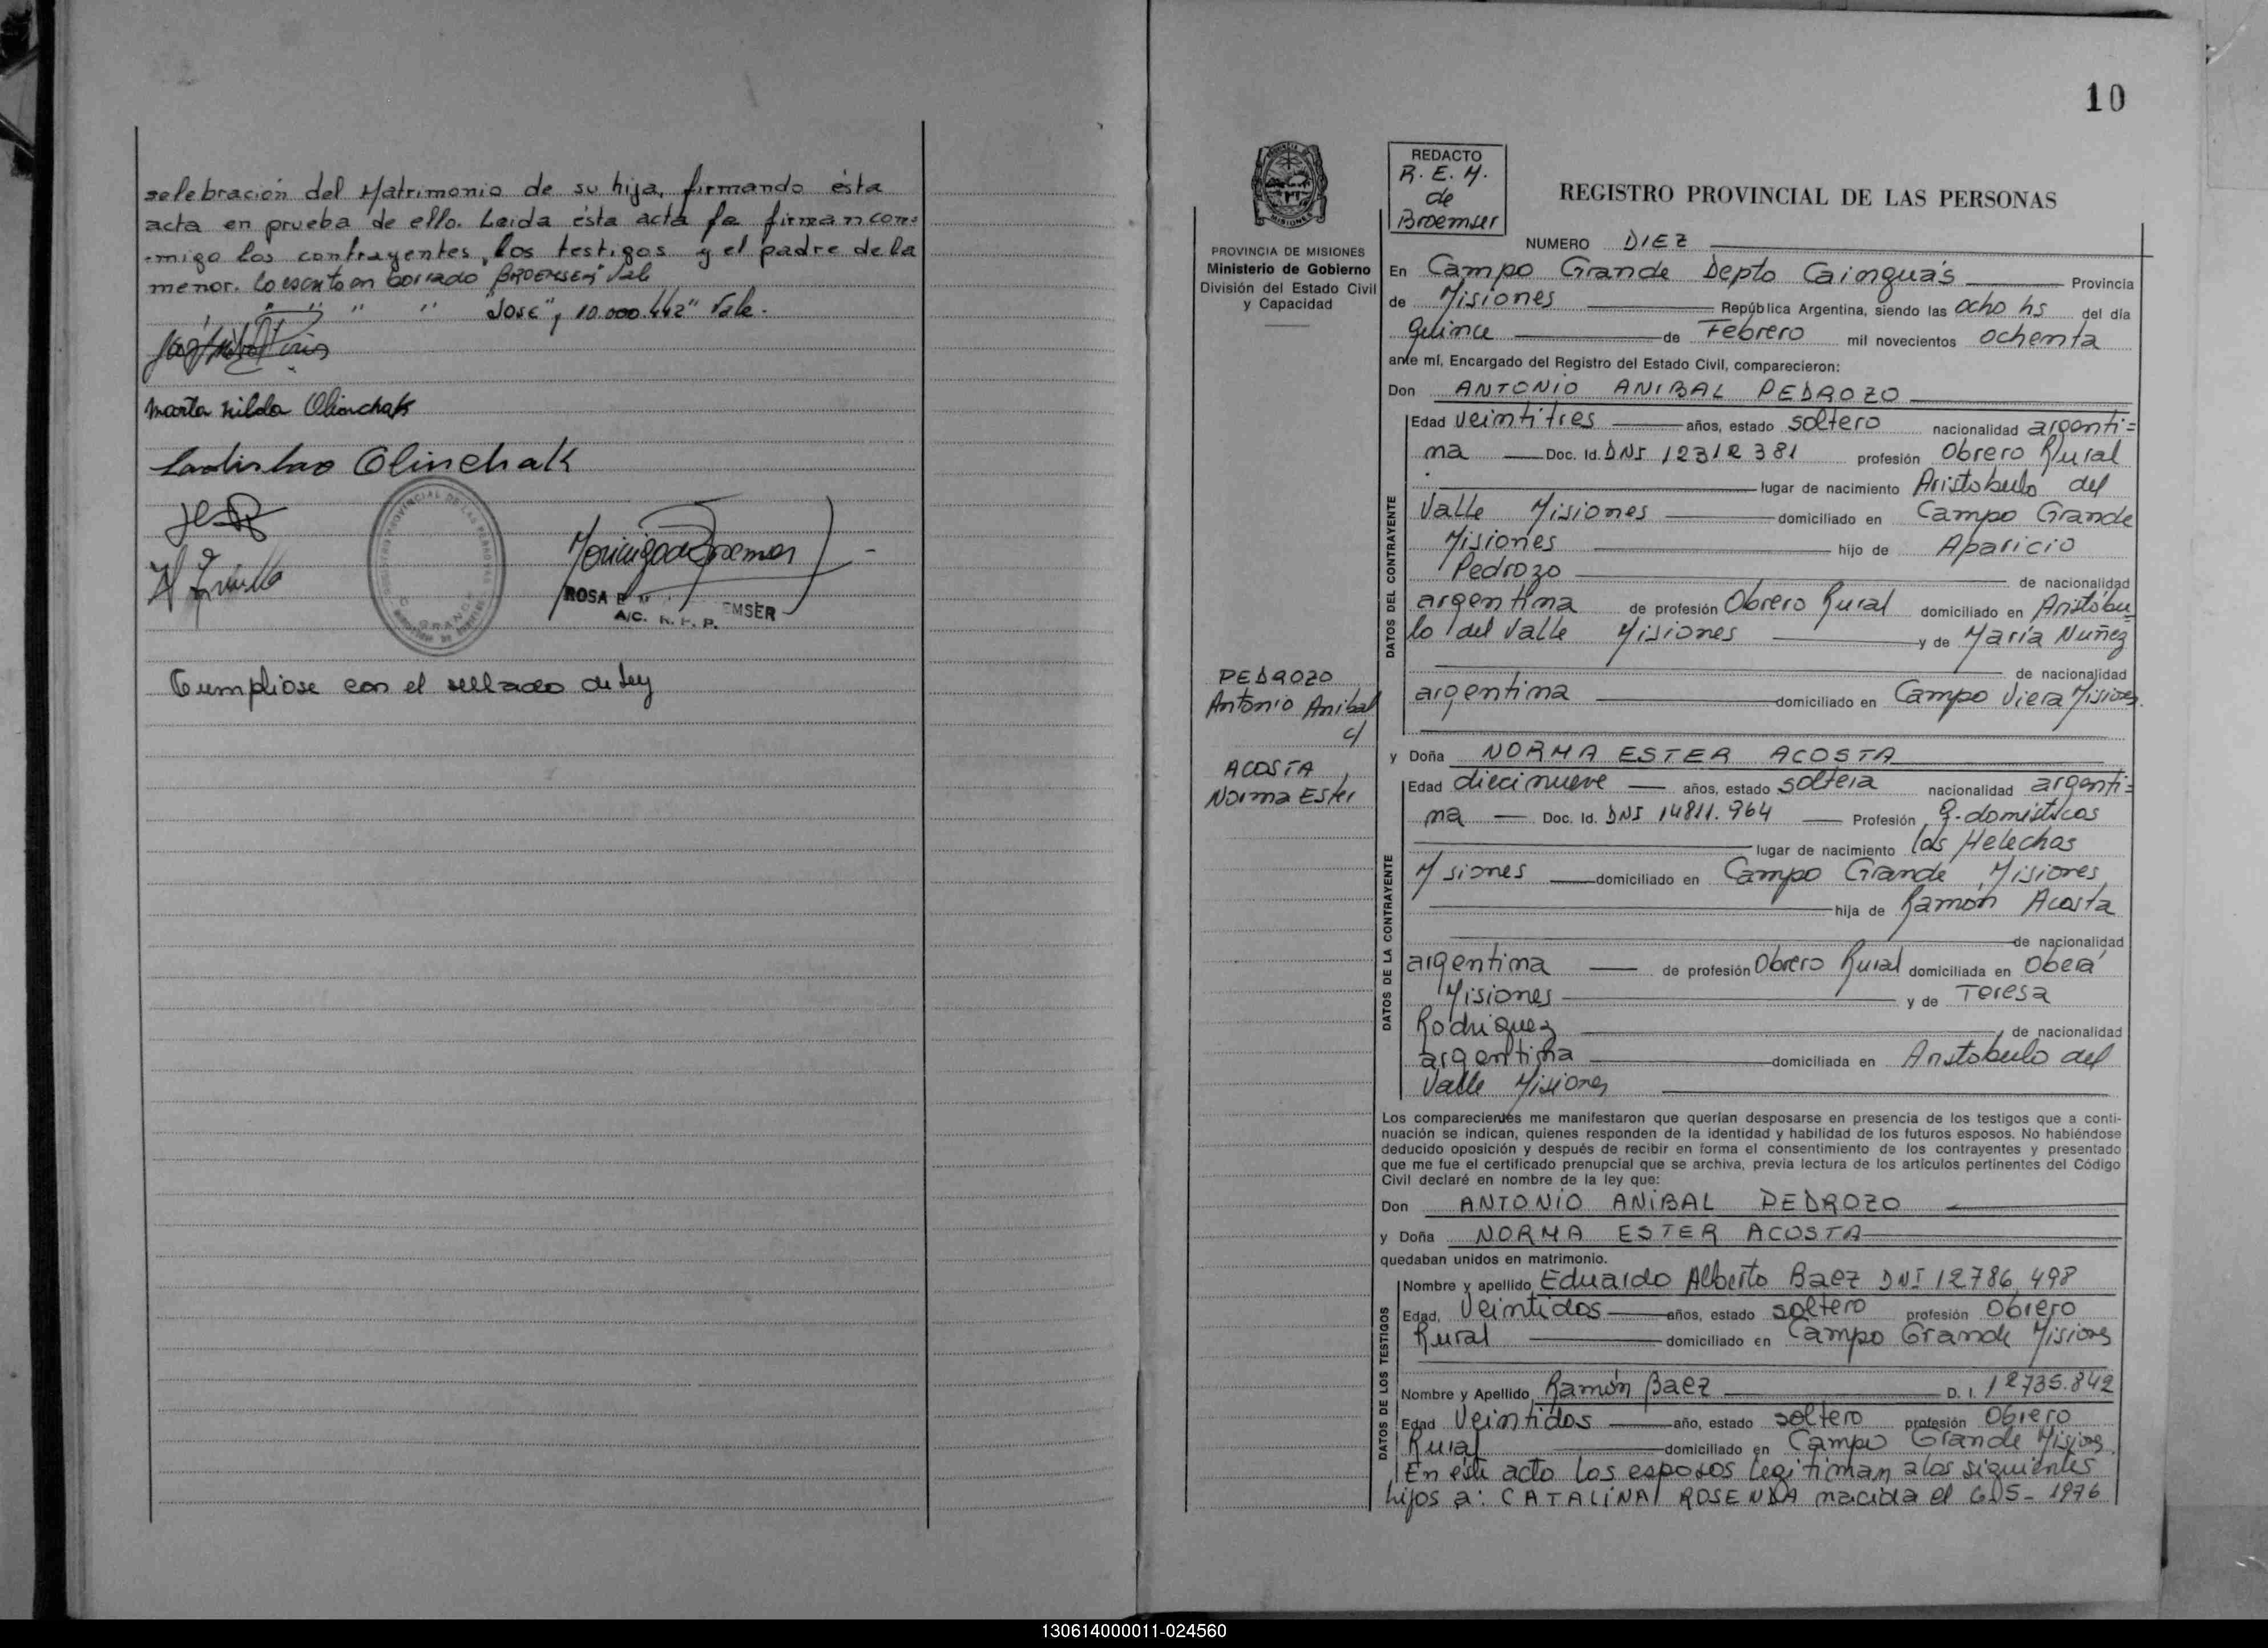 selebración del Matrimonio de su hija, firmando ésta
acta en prueba de ello. Leida ésta acta la firman con=
=migo los contrayentes, los testigos y el padre de la
menor. Lo escrito en borrado BROEMSER" Vale
" " " " "José", 10.000.442" Vale.
Marta nilda Olinchak
Ladislao Olinchak
ROSA E M EMSER
A/C. R. P. P.
Cumpliose con el sellado de Ley
10
REDACTO
R. E. M.
de
Broemser
REGISTRO PROVINCIAL DE LAS PERSONAS
PROVINCIA DE MISIONES
Ministerio de Gobierno
División del Estado Civil
y Capacidad
NUMERO DIEZ
En Campo Grande Depto Cainguás Provincia
de Misiones República Argentina, siendo las ocho hs del día
quince de Febrero mil novecientos ochenta
ante mí, Encargado del Registro del Estado Civil, comparecieron:
Don ANTONIO ANIBAL PEDROZO
DATOS DEL CONTRAYENTE
Edad veintitres años, estado soltero nacionalidad argenti=
na Doc. Id. DNI 12312381 profesión Obrero Rural
lugar de nacimiento Aristobulo del
Valle Misiones domiciliado en Campo Grande
Misiones hijo de Aparicio
Pedrozo de nacionalidad
argentina de profesión Obrero Rural domiciliado en Aristóbu=
lo del Valle Misiones y de María Nuñez
de nacionalidad
argentina domiciliado en Campo Viera Misiones.
PEDROZO
Antonio Anibal
c/
ACOSTA,
Norma Ester
y Doña NORMA ESTER ACOSTA
DATOS DE LA CONTRAYENTE
Edad diecinueve años, estado soltera nacionalidad argenti=
na Doc. Id. DNI 14811.964 Profesión Q. domésticos
lugar de nacimiento los Helechos
Misiones domiciliado en Campo Grande Misiones
hija de Ramón Acosta
de nacionalidad
argentina de profesión Obrero Rural domiciliada en Oberá
Misiones y de Teresa
Rodriguez de nacionalidad
argentina domiciliada en Aristobulo del
Valle Misiones
Los comparecientes me manifestaron que querían desposarse en presencia de los testigos que a conti-
nuación se indican, quienes responden de la identidad y habilidad de los futuros esposos. No habiéndose
deducido oposición y después de recibir en forma el consentimiento de los contrayentes y presentado
que me fue el certificado prenupcial que se archiva, previa lectura de los artículos pertinentes del Código
Civil declaré en nombre de la ley que:
Don ANTONIO ANIBAL PEDROZO
y Doña NORMA ESTER ACOSTA
quedaban unidos en matrimonio.
DATOS DE LOS TESTIGOS
Nombre y apellido Eduardo Alberto Baez DNI 12786,498
Edad, Veintidos años, estado soltero profesión Obrero
Rural domiciliado en Campo Grande Misiones
Nombre y Apellido Ramón Baez D. I. 12735.842
Edad Veintidos año, estado soltero profesión Obrero
Rural domiciliado en Campo Grande Misiones.
En este acto los esposos legitiman a los siguientes
hijos a: CATALINA ROSENDA nacida el 6-5-1976
130614000011-024560